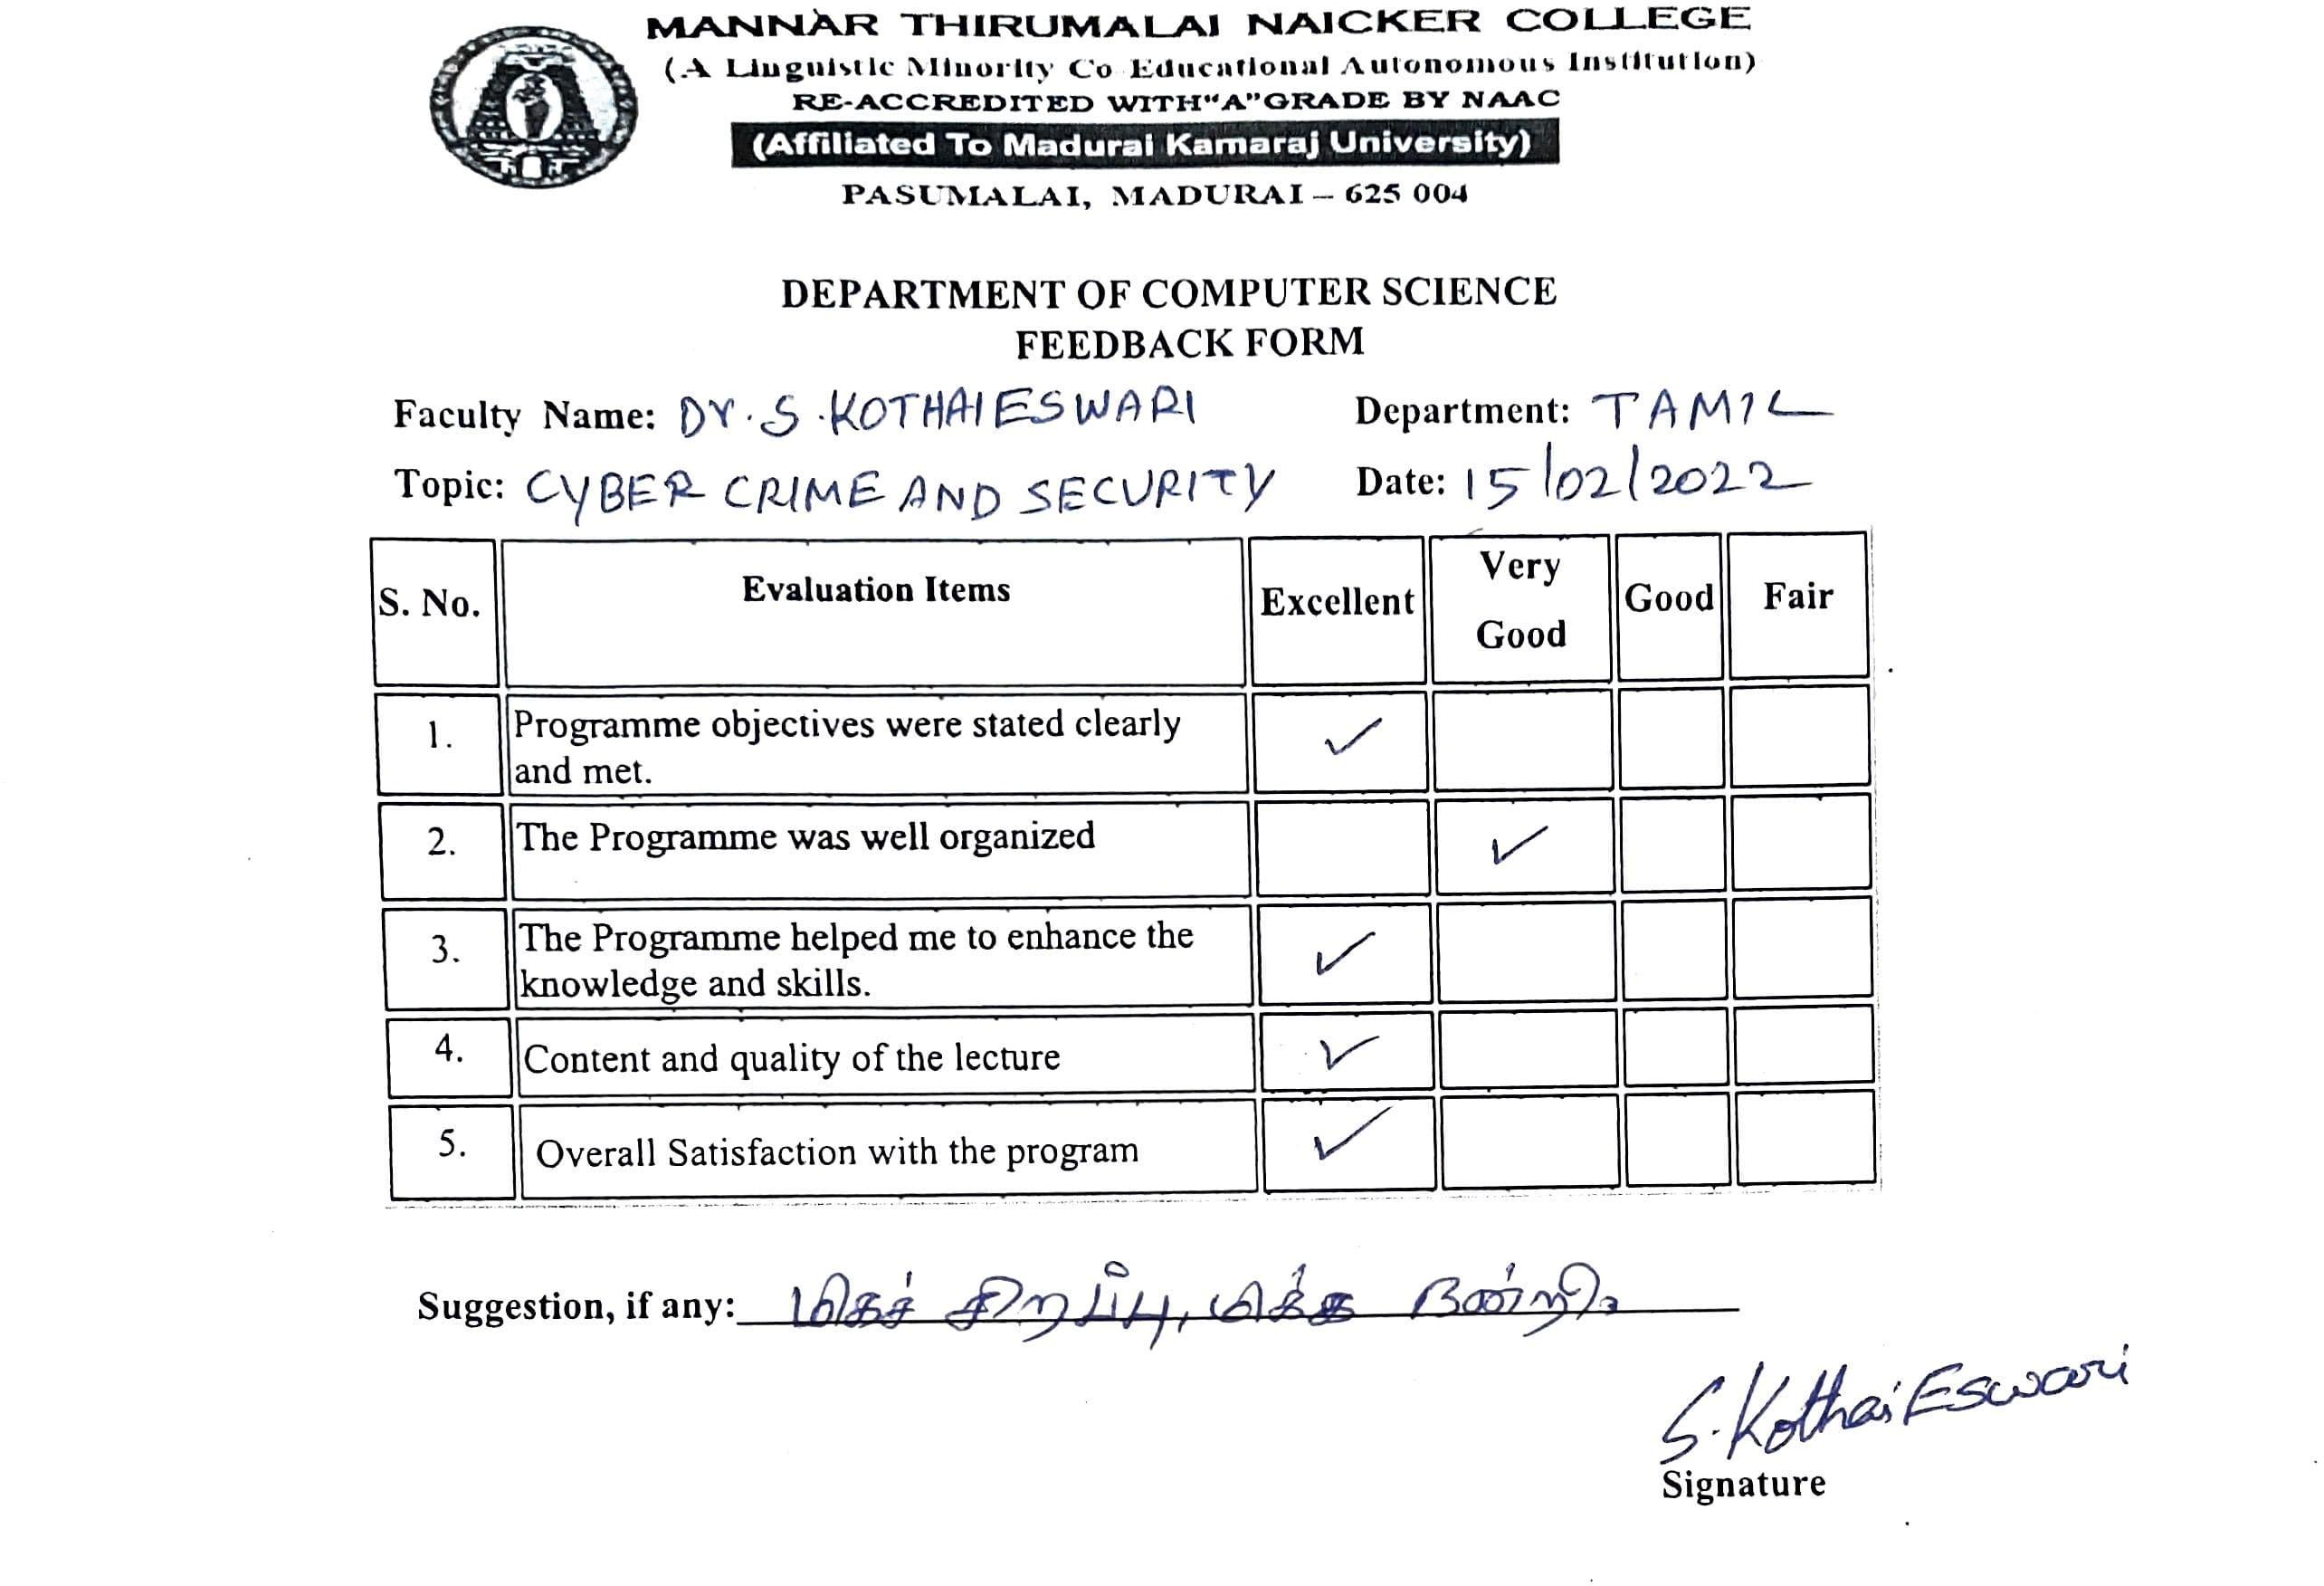 MANNAR THIRUMALAI NAICKER COLLEGE
(A Linguistic Minority Co Educational Autonomous Institution)
RE-ACCREDITED WITH“A”GRADE BY NAAC
(Affiliated To Madurai Kamaraj University)
PASUMALAI, MADURAI – 625 004
DEPARTMENT OF COMPUTER SCIENCE
FEEDBACK FORM
Faculty Name: Dr. S. KOTHAI ESWARI Department: TAMIL
Topic: CYBER CRIME AND SECURITY Date: 15/02/2022
S. No. Evaluation Items Excellent Very Good Good Fair
1. Programme objectives were stated clearly and met. ✓
2. The Programme was well organized ✓
3. The Programme helped me to enhance the knowledge and skills. ✓
4. Content and quality of the lecture ✓
5. Overall Satisfaction with the program ✓
Suggestion, if any: மிகச் சிறப்பு, மிக்க நன்றி.
S. Kothai Eswari
Signature